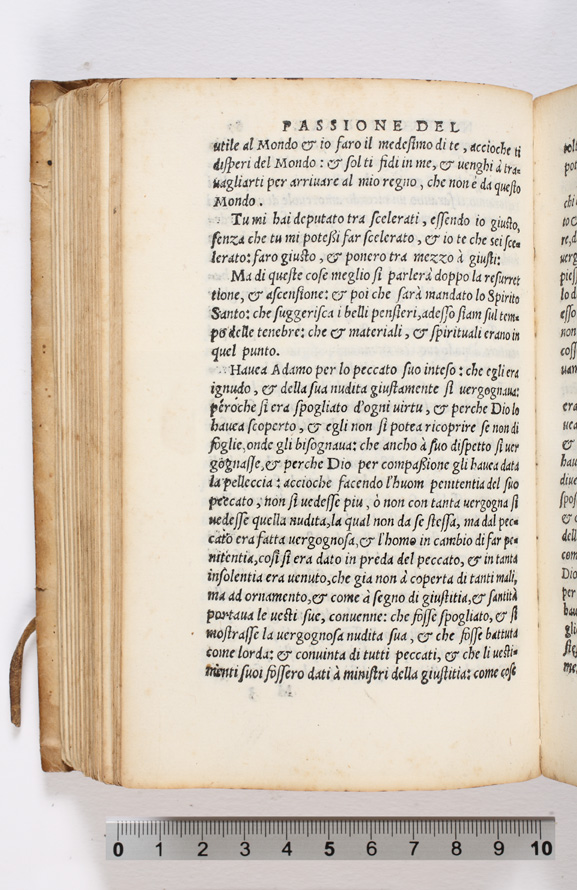 PASSIONE DEL
utile al Mondo & io faro il medesimo di te, accioche ti
disperi del Mondo: & sol ti fidi in me, & uenghi à tra-
uagliarti per arriuare al mio regno, che non è da questo
Mondo.
Tu mi hai deputato tra scelerati, essendo io giusto,
senza che tu mi potessi far scelerato, & io te che sei sce-
lerato: faro giusto, & ponero tra mezzo à giusti:
Ma di queste cose meglio si parlerà doppo la resurret
tione, & ascensione: & poi che sarà mandato lo Spirito
Santo: che suggerisca i belli pensieri, adesso siam sul tem-
po delle tenebre: che & materiali, & spirituali erano in
quel punto.
Hauea Adamo per lo peccato suo inteso: che egli era
ignudo, & della sua nudita giustamente si uergognaua:
peroche si era spogliato d'ogni uirtu, & perche Dio lo
hauea scoperto, & egli non si potea ricoprire se non di
foglie, onde gli bisognaua: che ancho à suo dispetto si uer
gognasse, & perche Dio per compassione gli hauea data
la pelleccia: accioche facendo l'huom penitentia del suo
peccato, non si uedesse piu, ò non con tanta uergogna si
uedesse quella nudita, la qual non da se stessa, ma dal pec-
cato era fatta uergognosa, & l'homo in cambio di far pe-
nitentia, cosi si era dato in preda del peccato, & in tanta
insolentia era uenuto, che gia non à coperta di tanti mali,
ma ad ornamento, & come à segno di giustitia, & santità
portaua le uesti sue, conuenne: che fosse spogliato, & si
mostrasse la uergognosa nudita sua, & che fosse battuta
come lorda: & conuinta di tutti peccati, & che li uesti-
menti suoi fossero dati à ministri della giustitia: come cose
0 1 2 3 4 5 6 7 8 9 10